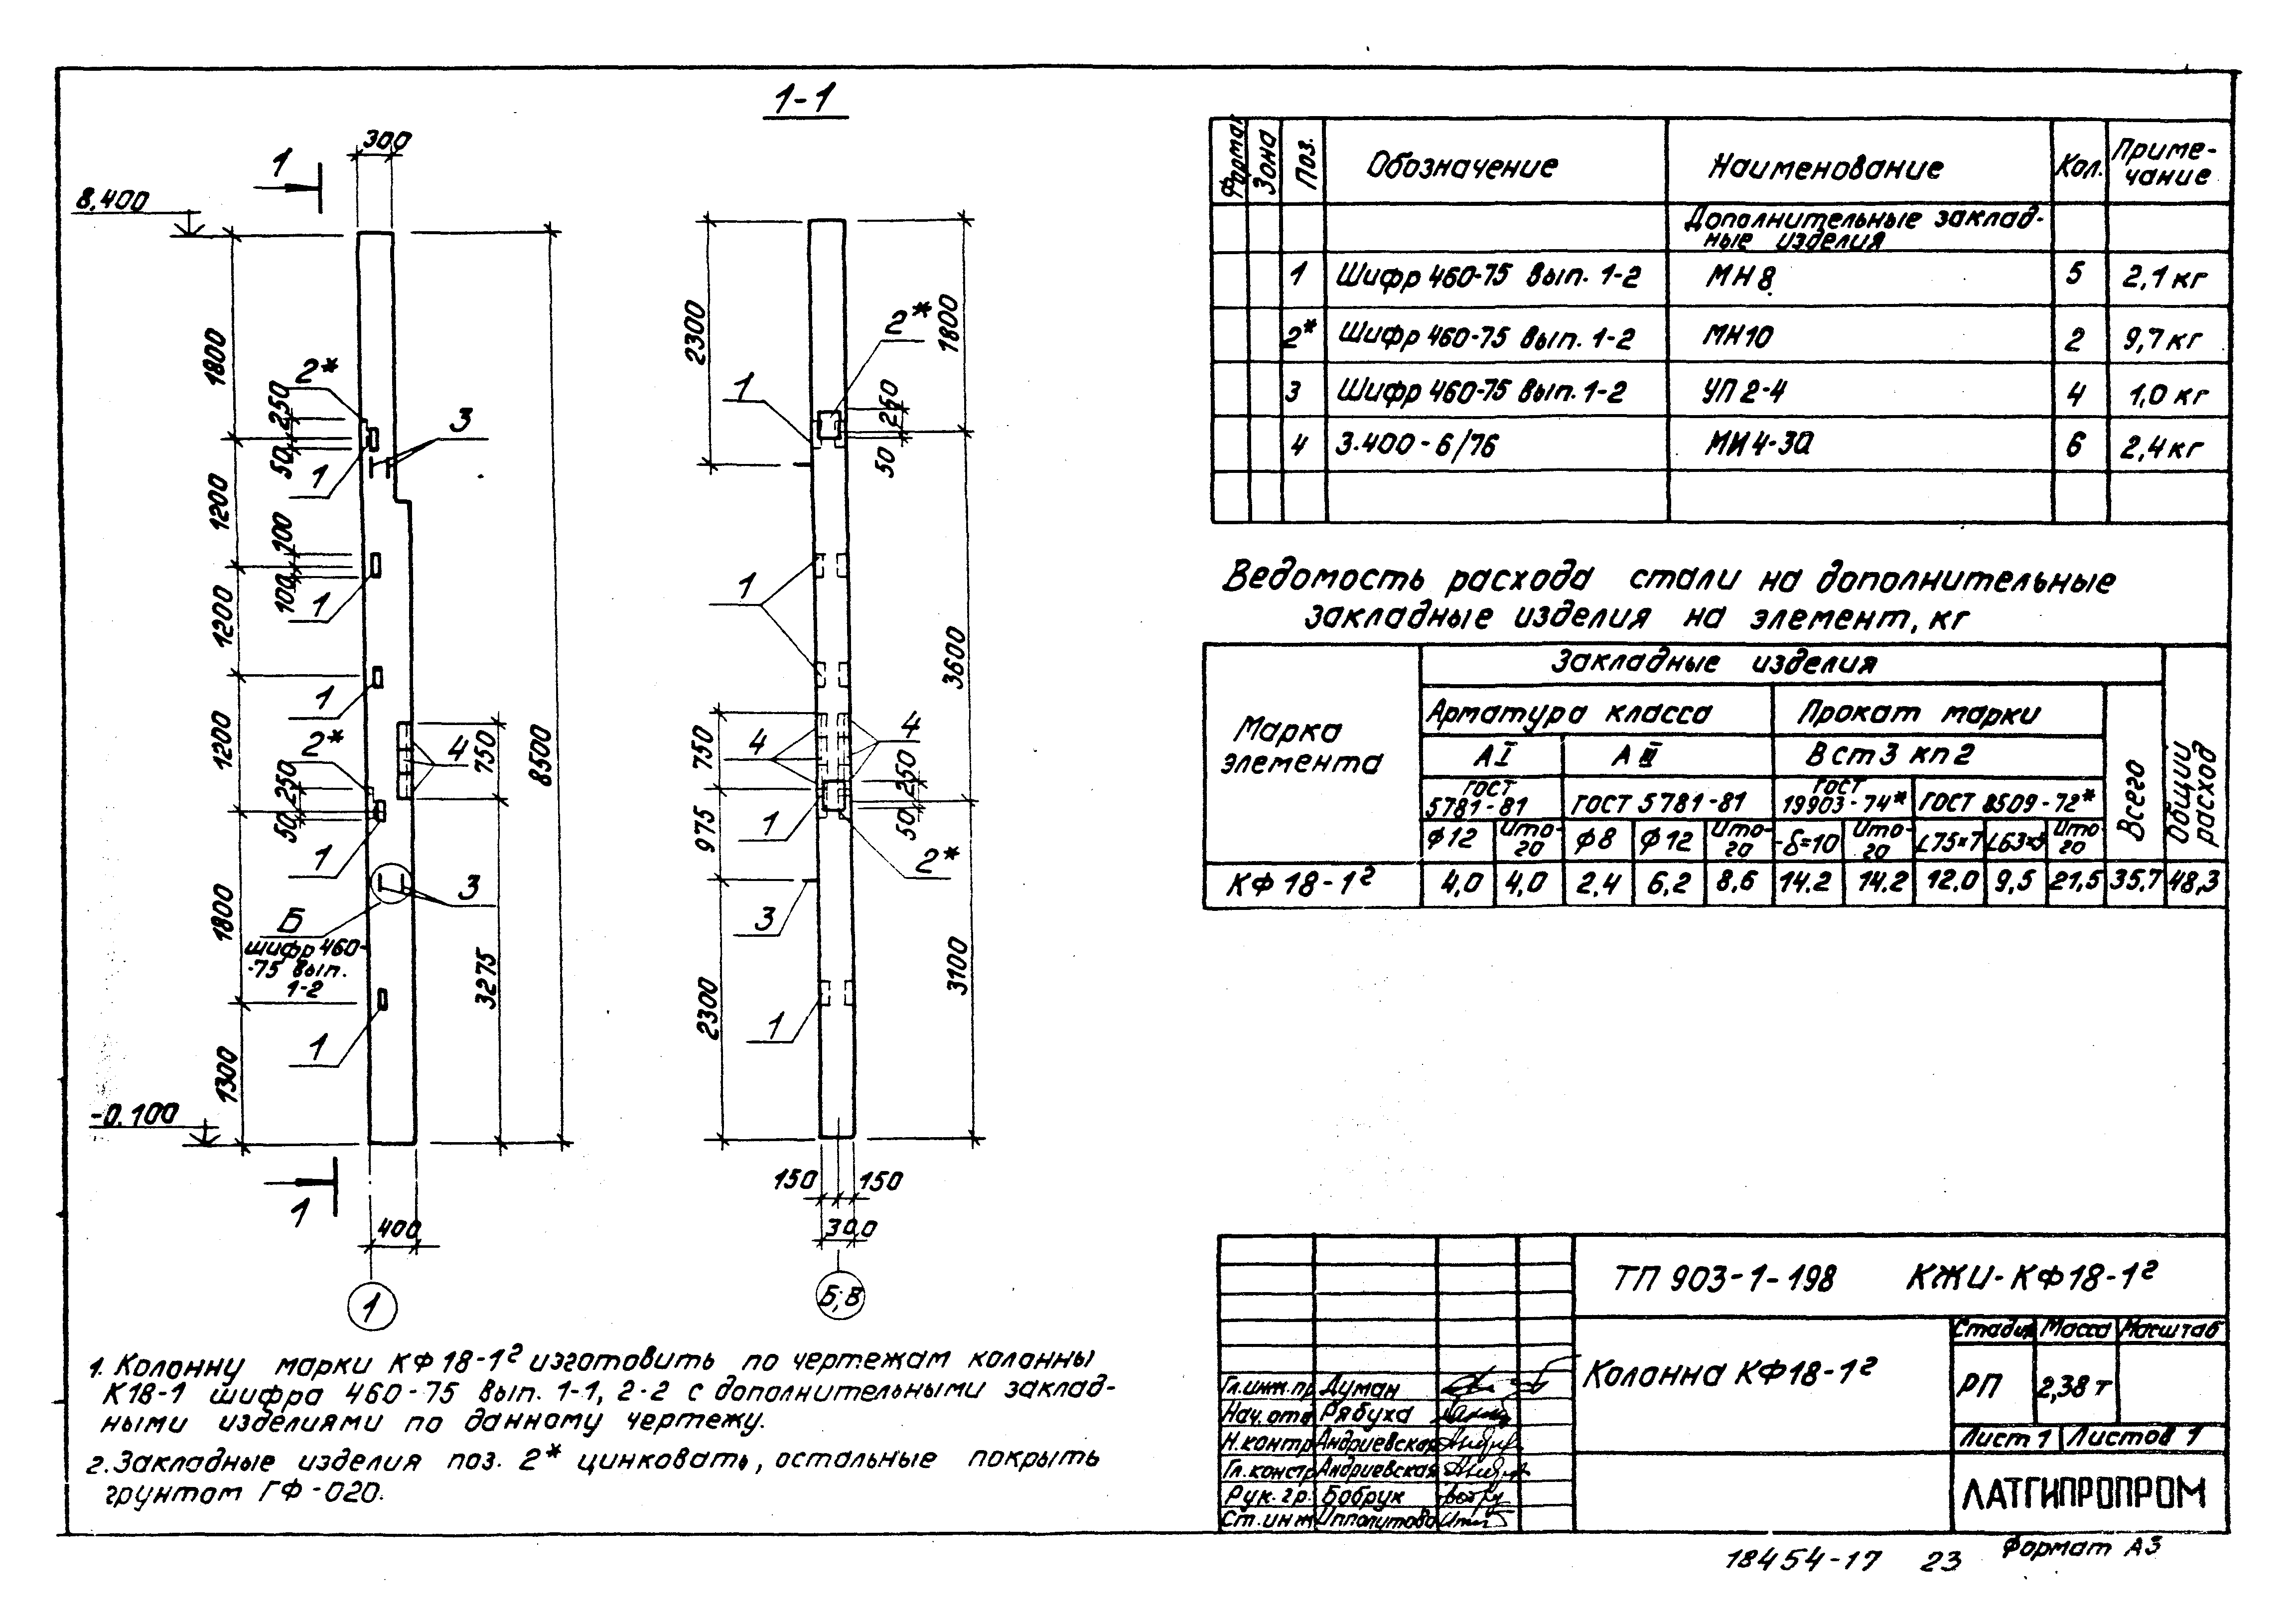 1-1
300
1
8.400
1800
250
50
2*
1
3
1200
100
100
1
1200
1
1200
2*
250
50
1
4
750
8500
3
Б
шифр 460-
-75 вып.
1-2
1800
3275
1
1300
-0.100
1
400
1
2300
1
2*
1800
250
50
1
3600
750
4
4
250
50
975
1
2*
3
2300
3100
1
150
150
300
Б; В
Формат
Зона
Поз.
Обозначение
Наименование
Кол.
Приме-
чание
Дополнительные заклад-
ные изделия
1 Шифр 460-75 вып. 1-2 МН 8 5 2,1 кг
2* Шифр 460-75 вып. 1-2 МН10 2 9,7 кг
3 Шифр 460-75 вып. 1-2 УП 2-4 4 1,0 кг
4 3.400-6/76 МИ 4-30 6 2,4 кг
Ведомость расхода стали на дополнительные
закладные изделия на элемент, кг
Марка
элемента
Закладные изделия
Арматура класса
Прокат марки
А I
А III
В ст 3 кп 2
ГОСТ
5781-81
ГОСТ 5781-81
ГОСТ
19903-74*
ГОСТ 8509-72*
Всего
Общий
расход
ф12 Ито-го ф8 ф12 Ито-го -δ=10 Ито-го L75×7 L63×5 Ито-го
КФ 18-1г 4,0 4,0 2,4 6,2 8,6 14.2 14.2 12.0 9,5 21,5 35,7 48,3
1. Колонну марки КФ 18-1г изготовить по чертежам колонны
К18-1 шифра 460-75 вып. 1-1, 2-2 с дополнительными заклад-
ными изделиями по данному чертежу.
2. Закладные изделия поз. 2* цинковать, остальные покрыть
грунтом ГФ-020.
ТП 903-1-198 КЖИ-КФ18-1г
Колонна КФ18-1г
Стадия Масса Масштаб
РП 2,38 т
Лист 1 Листов 1
ЛАТГИПРОПРОМ
Гл.инж.пр Думан
Нач.отд Рябуха
Н.контр Андриевская
Гл.констр Андриевская
Рук.гр. Бобрук
Ст.инж Ипполитова
18454-17 23 Формат А3